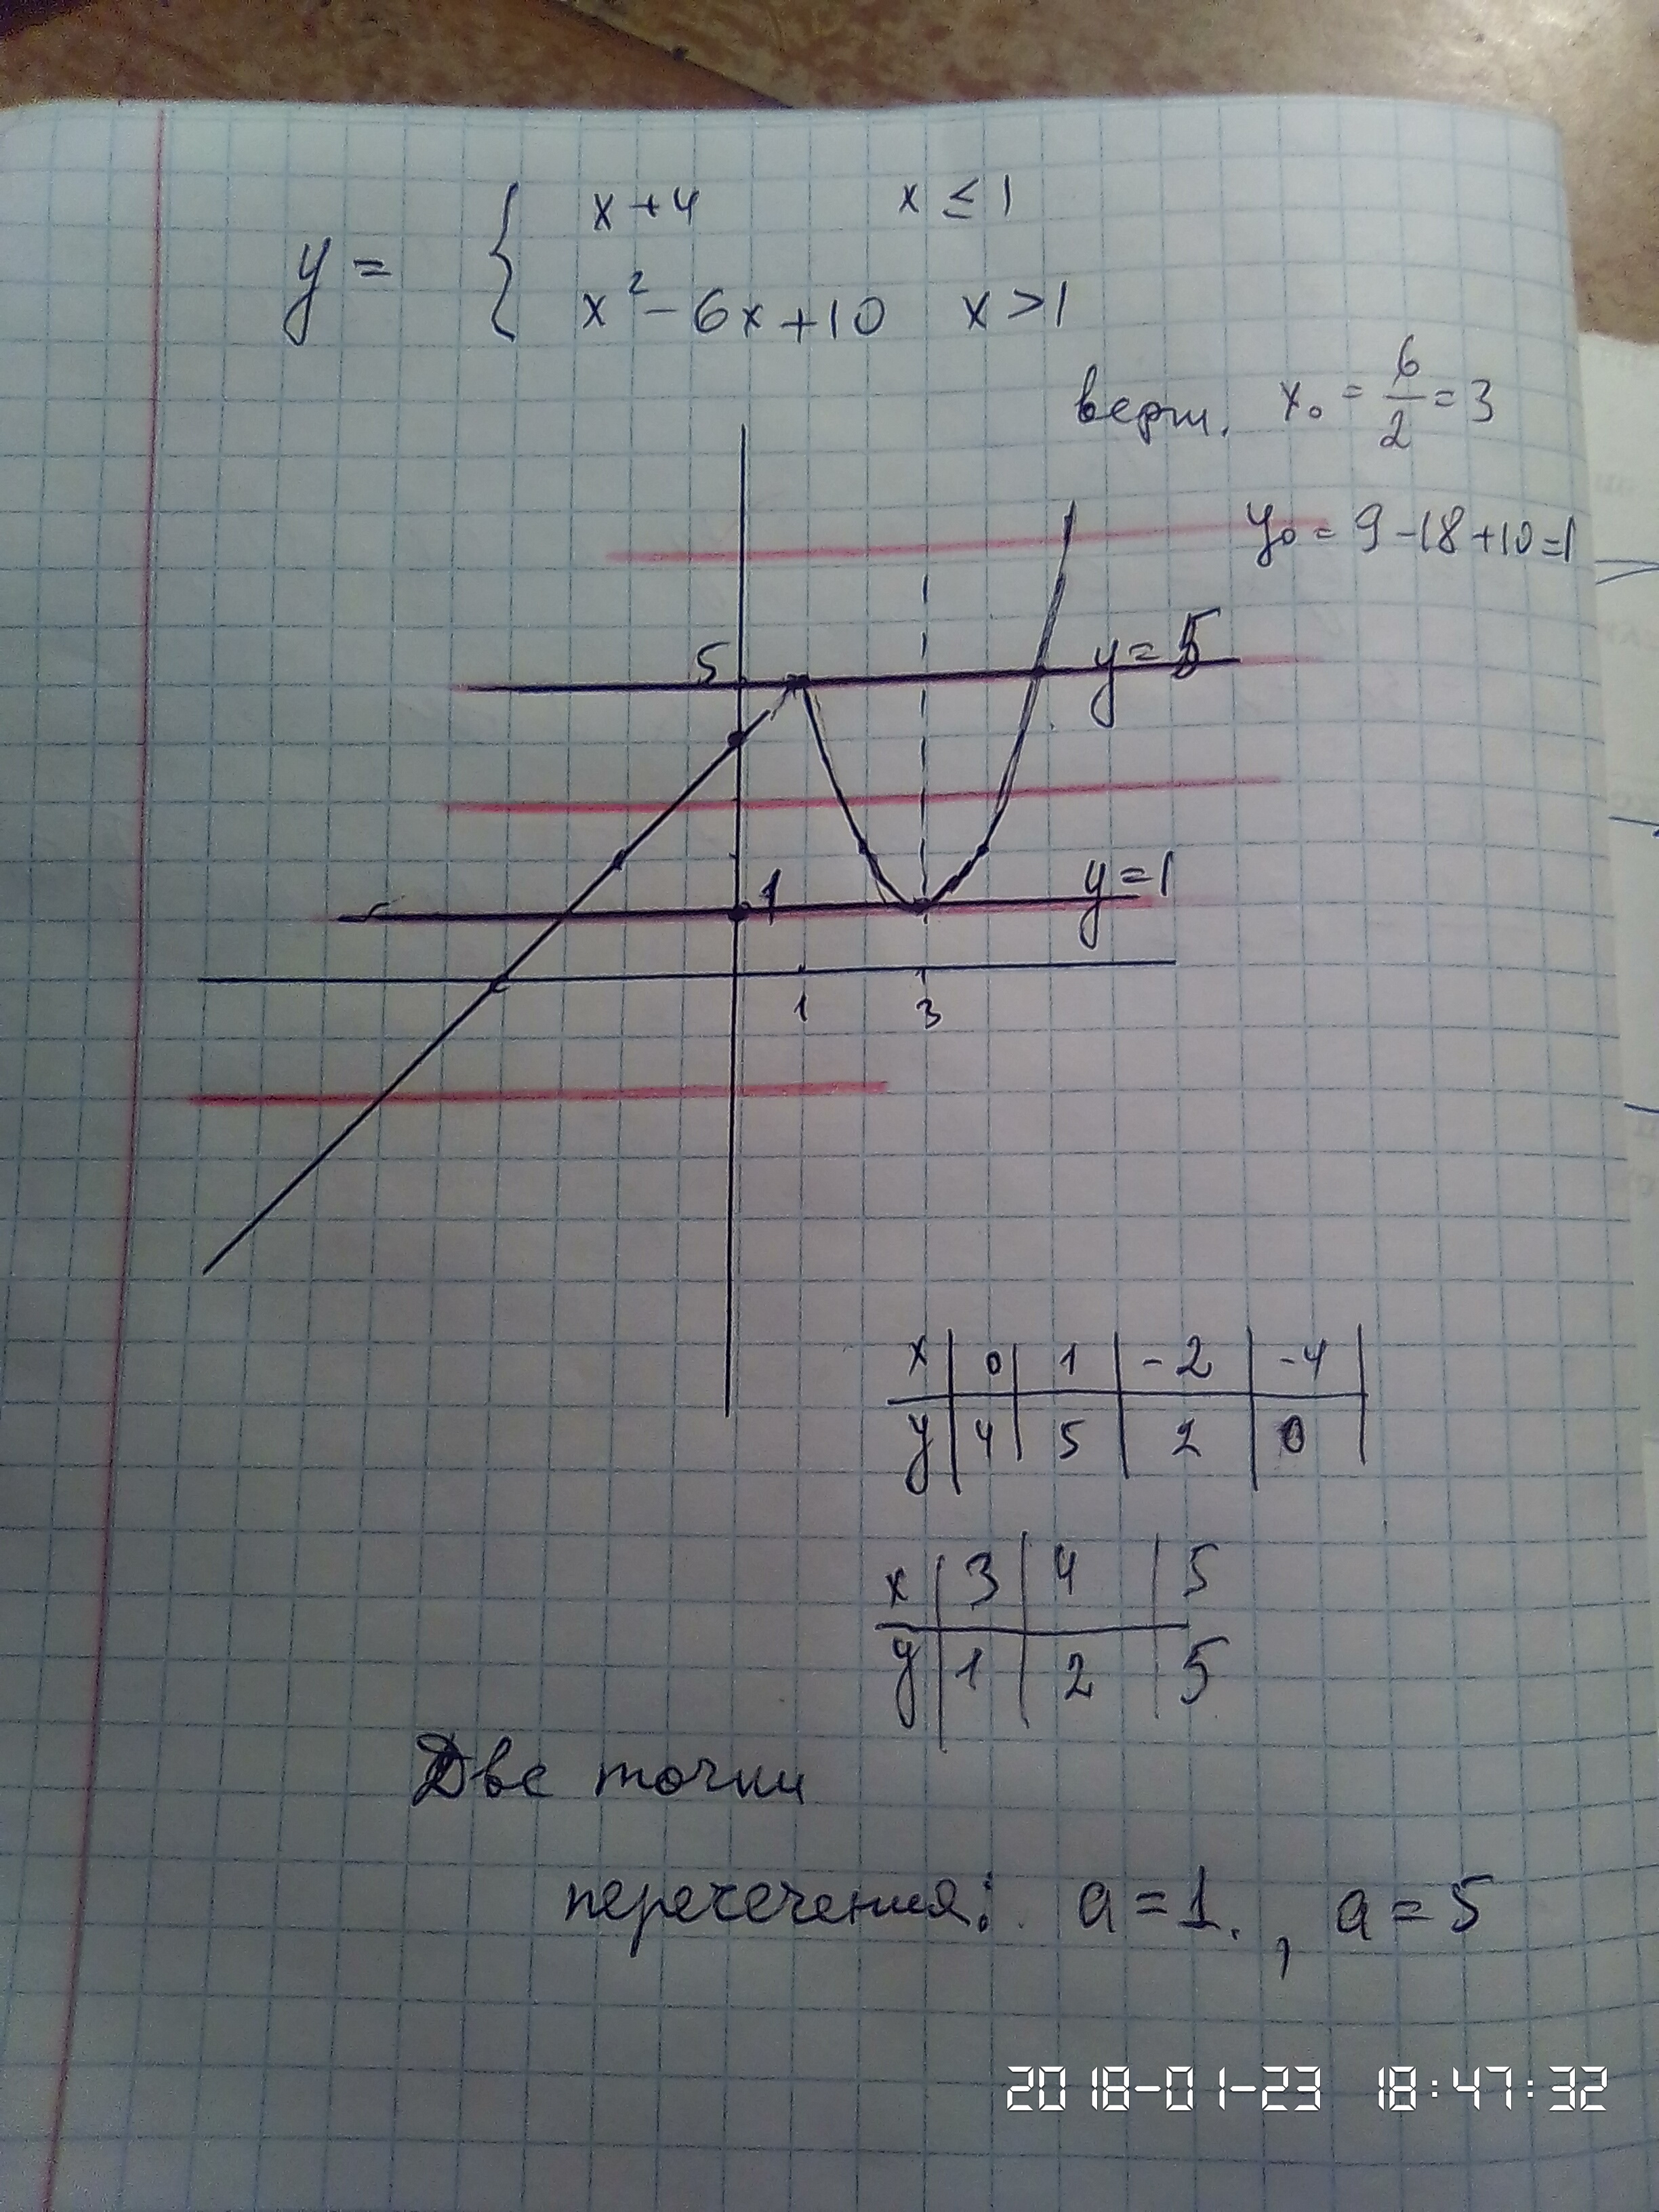 y = { x + 4 x ≤ 1
x² - 6x + 10 x > 1
верш. x₀ = 6/2 = 3
y₀ = 9 - 18 + 10 = 1
5 y = 5
1 y = 1
1 3
x | 0 | 1 | -2 | -4 |
y | 4 | 5 | 2 | 0 |
x | 3 | 4 | 5
y | 1 | 2 | 5
Две точки
пересечения: a = 1. , a = 5
2018-01-23 18:47:32